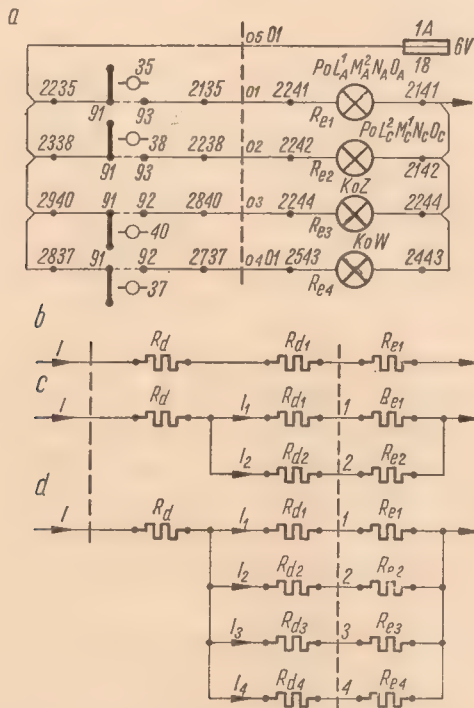 a
0501
1A
6V
18
35
PoL¹AM²ANADA
2235
91
93
2135
01
2241
Re1
2141
38
PoL²CM¹CNCDC
2338
91
93
2238
02
2242
Re2
2142
KoZ
2940
91
92
2840
03
2244
Re3
2244
40
KoW
2837
91
92
2737
0401
2543
Re4
2443
37
b
I
Rd
Rd1
Re1
c
I
Rd
I1
Rd1
1
Be1
I2
Rd2
2
Re2
d
I
Rd
I1
Rd1
1
Re1
I2
Rd2
2
Re2
I3
Rd3
3
Re3
I4
Rd4
4
Re4